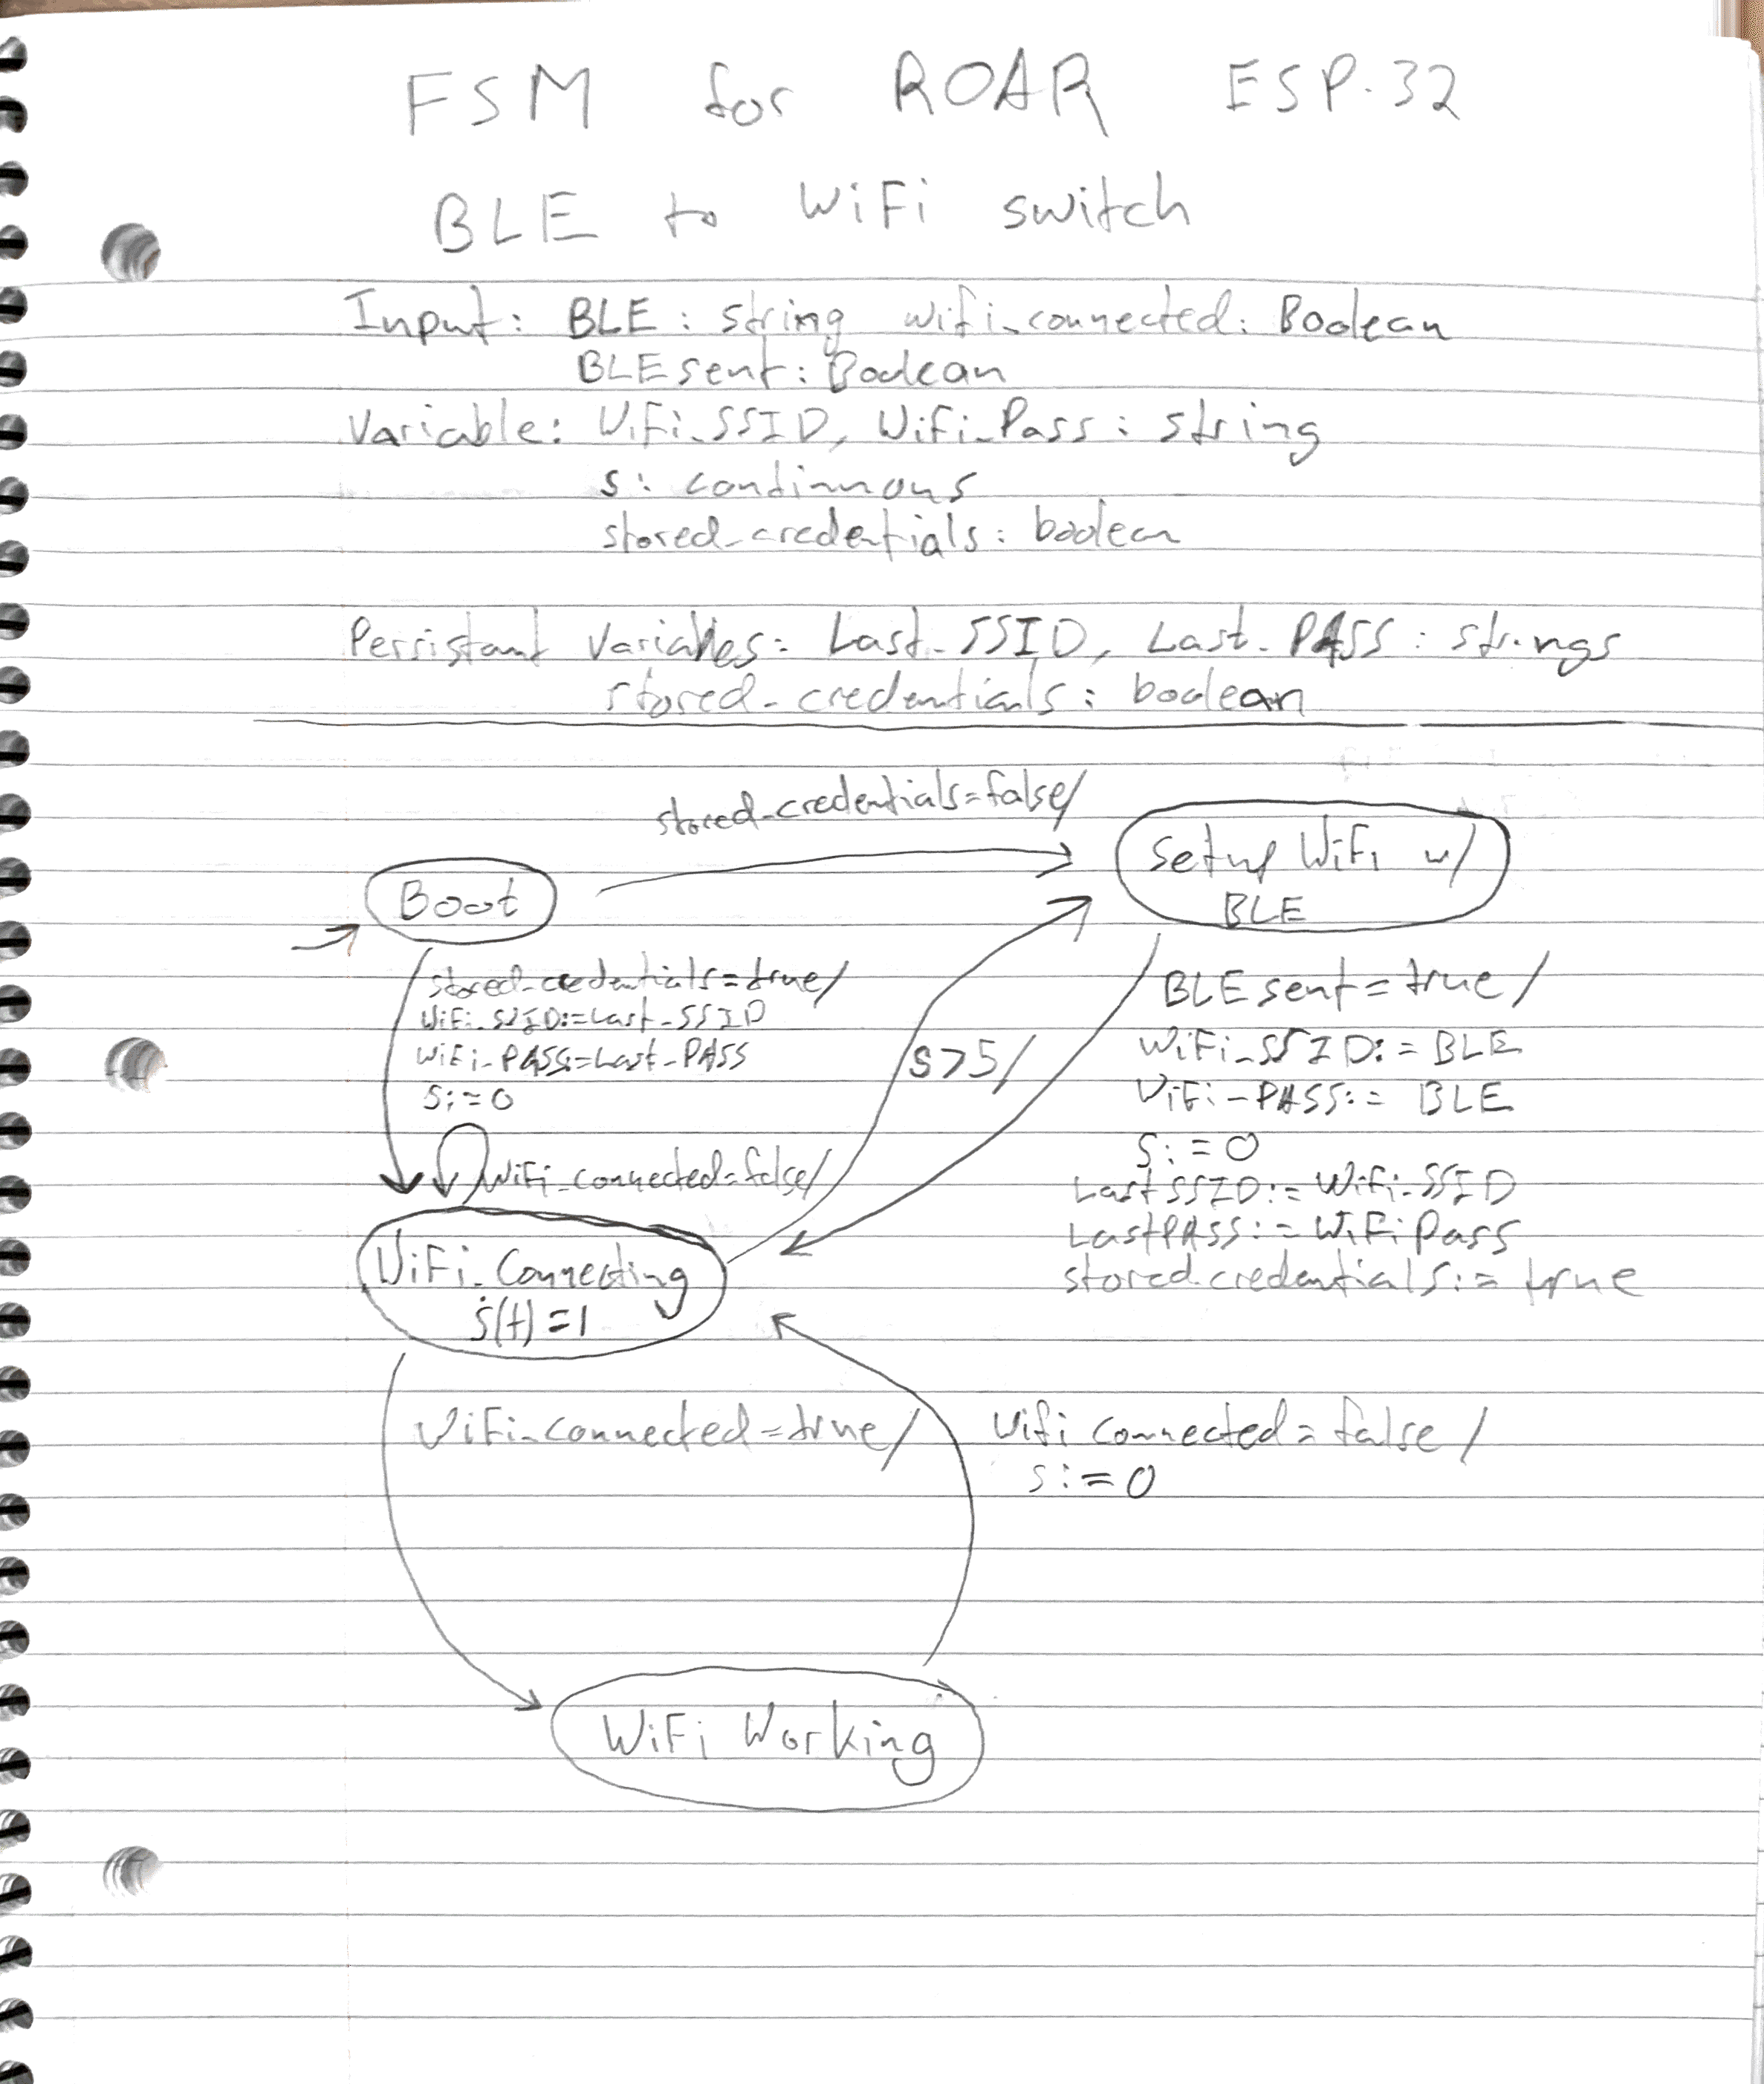 FSM for ROAR ESP-32
BLE to WiFi switch
Input: BLE : string wifi_connected: Boolean
BLEsent: Boolean
Variable: WiFi_SSID, WiFi_Pass : string
s: continuous
stored_credentials: boolean
Persistant Variables: Last_SSID, Last_PASS : strings
stored_credentials: boolean
stored_credentials=false/
Setup WiFi w/
BLE
Boot
stored_credentials=true/
WiFi_SSID:=Last_SSID
WiFi_PASS:=Last_PASS
s:=0
s>5/
BLEsent=true/
WiFi_SSID:=BLE
WiFi_PASS:= BLE
s:=0
LastSSID:=WiFi_SSID
LastPASS:=WiFiPass
stored_credentials:=true
WiFi_connected=false/
WiFi_Connecting
ṡ(t)=1
WiFi_connected=true/
Wifi connected=false/
s:=0
WiFi Working